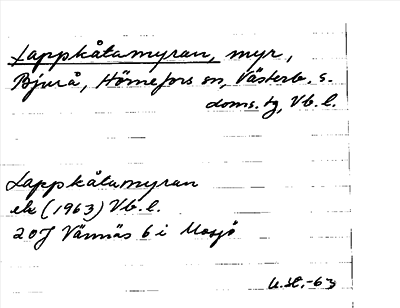 Lappkåtamyran, myr,
Bjurå, Hörnefors sn, Västerb. s.
doms. tg, Vb. l.
Lappkåtamyran
ek (1963) Vb. l.
20J Vännäs 6 i Mosjö
-63